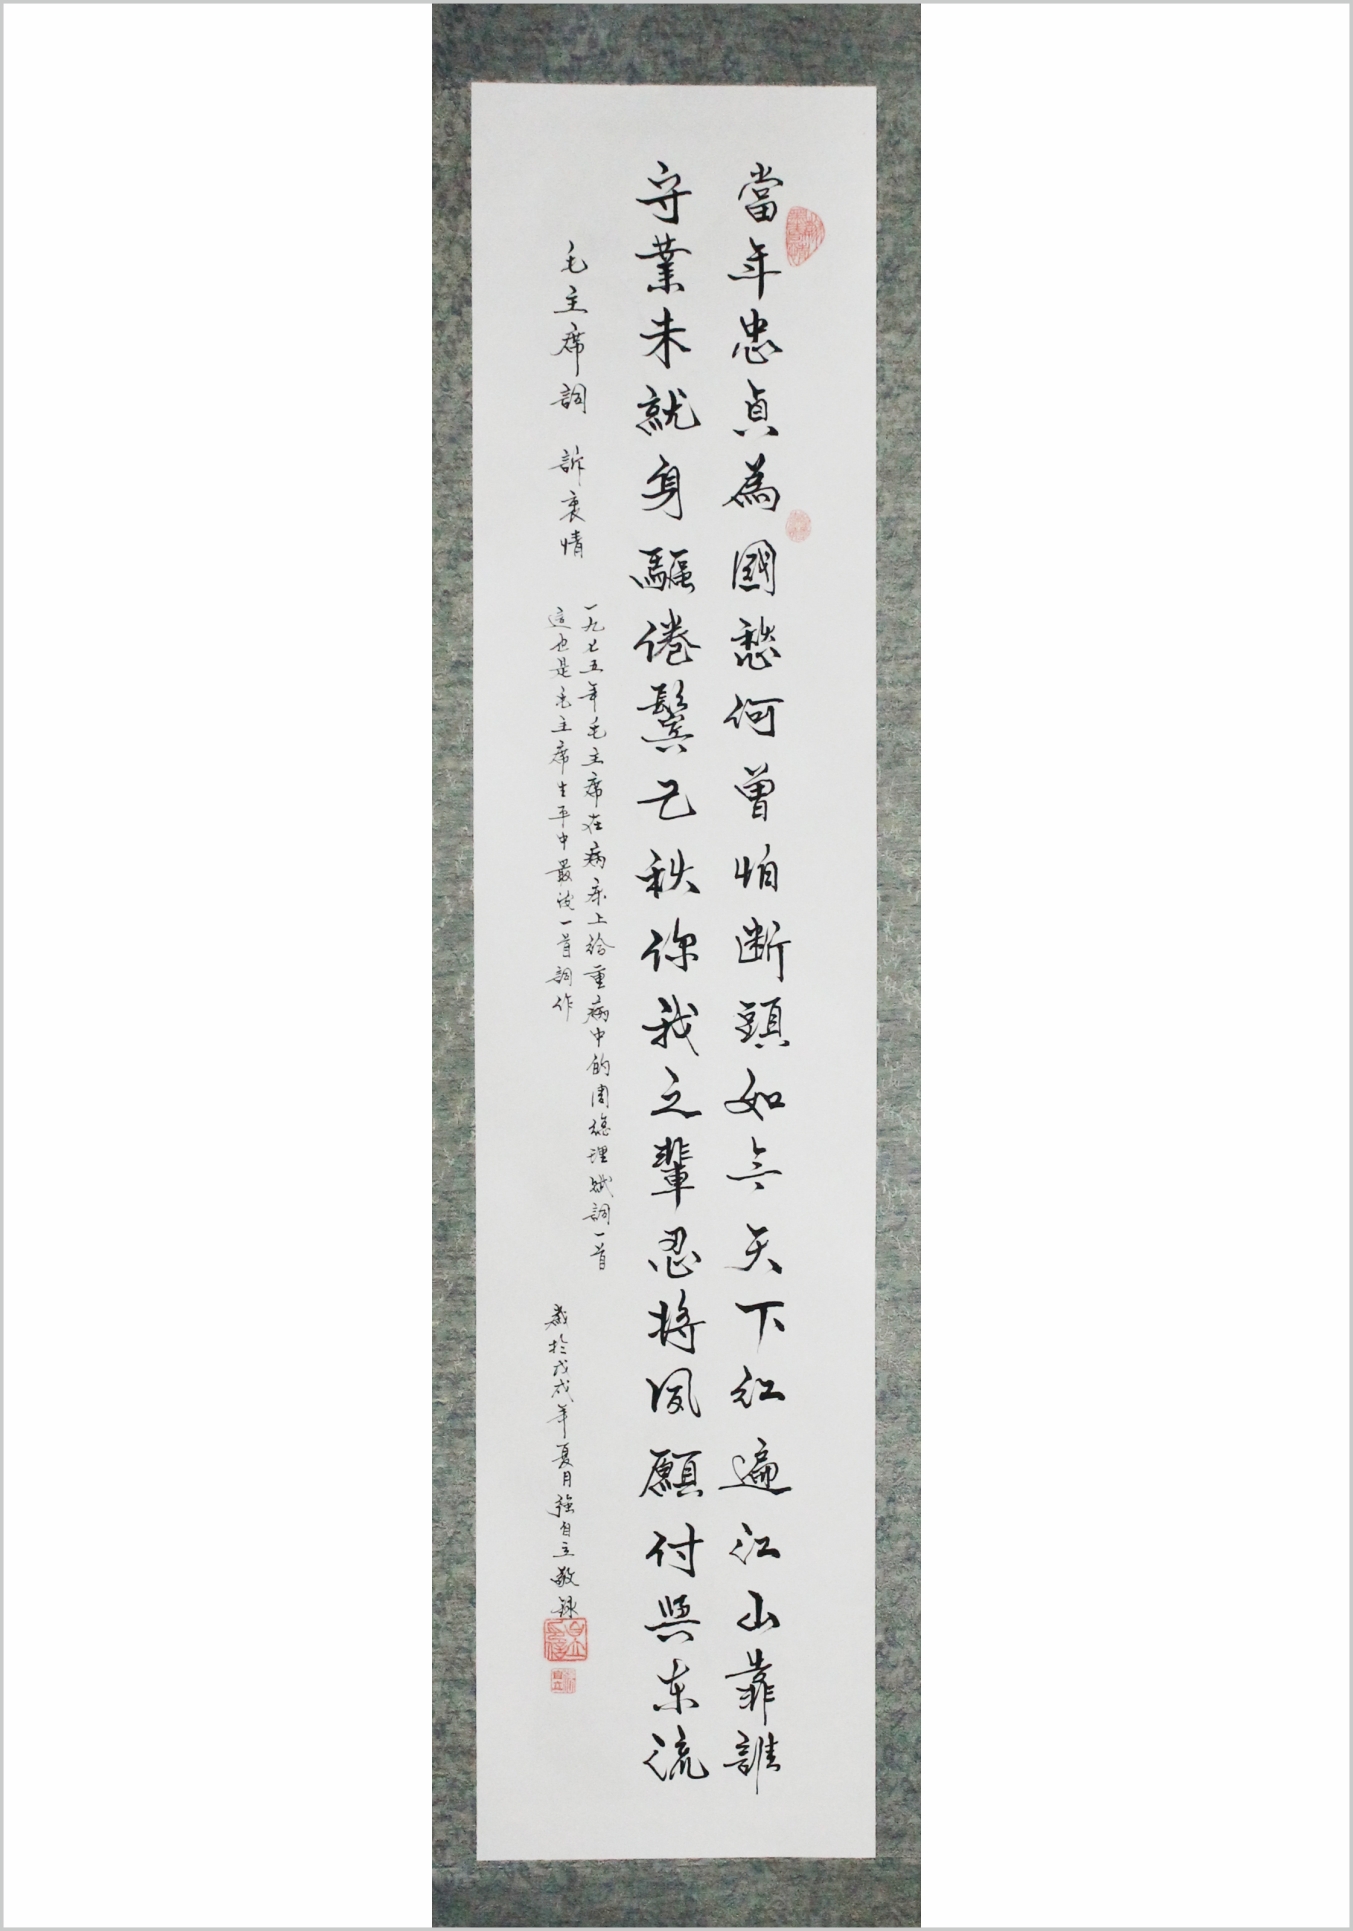 當年忠貞為國愁何曾怕断頭如今天下红遍江山靠誰
守業未就身驅倦鬓已秋你我之輩忍將夙願付與东流
毛主席詞 訴衷情
一九七五年毛主席在病床上给重病中的周總理赋詞一首
這也是毛主席生平中最後一首詞作
歲於戊戌年夏月強自立敬録